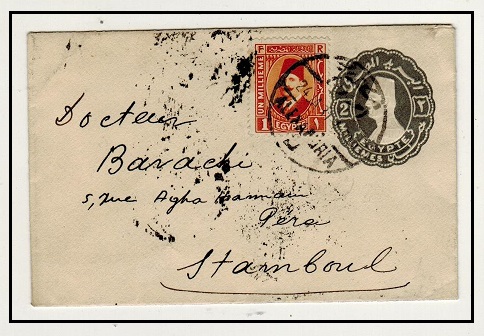 UN MILLIEME
1 EGYPTE ١
2 MILLIEMES ٢
EGYPTE
ALEXANDRIA
Docteur
Barachi
5, rue Agha Hammam
Péra
Stamboul